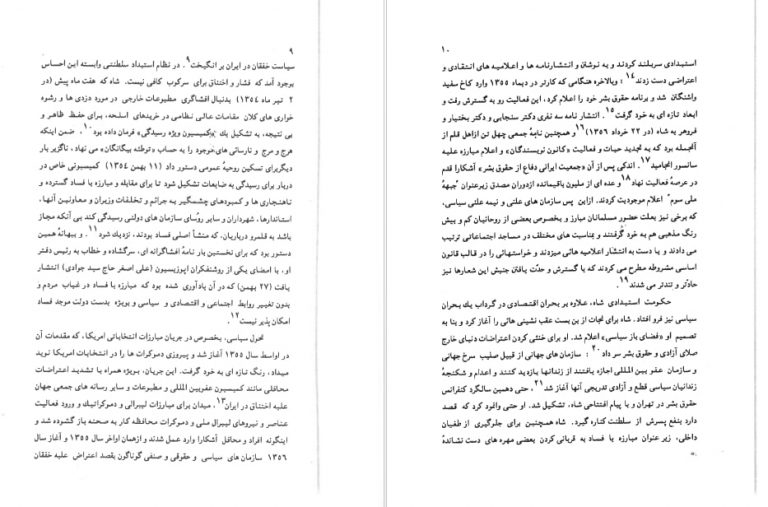 ۹
سیاست خفقان در ایران بر انگیخت۹. در نظام استبداد سلطنتی وابسته این احساس
بوجود آمد که فشار و اختناق برای سرکوب کافی نیست. شاه که هفت ماه پیش (در
۲ تیر ماه ۱۳۵۴) بدنبال افشاگری مطبوعات خارجی در مورد دزدی ها و رشوه
خواری های کلان مقامات عالی نظامی در خریدهای اسلحه، برای حفظ ظاهر و
بی نتیجه، به تشکیل یک کمیسیون ویژه رسیدگی۱۰ فرمان داده بود. ضمن اینکه
هرج و مرج و نارسائی های موجود را به حساب «توطئه بیگانگان» می نهاد، ناگزیر بار
دیگر برای تسکین روحیهٔ عمومی دستور داد (۱۱ بهمن ۱۳۵۴) کمیسیونی خاص در
دربار برای رسیدگی به ضایعات تشکیل شود تا برای مقابله و مبارزه با فساد گسترده و
ناهنجاری ها و کمبودهای چشمگیر به جرائم و تخلفات وزیران و معاونین آنها،
استاندارها، شهرداران و سایر روٴسای سازمان های دولتی رسیدگی کند بی آنکه مجاز
باشد به قلمرو درباریان، که منشأ اصلی فساد بودند، نزدیک شود۱۱. و ببهانهٔ همین
دستور بود که برای نخستین بار نامهٔ افشاگرانه ای، سرگشاده و خطاب به رئیس دفتر
او، با امضای یکی از روشنفکران اپوزیسیون (علی اصغر حاج سید جوادی) انتشار
یافت (۲۷ بهمن) که در آن یادآوری شده بود که مبارزه با فساد در غیاب مردم و
بدون تغییر روابط اجتماعی و اقتصادی و سیاسی و بویژه بدست دولت موجد فساد
امکان پذیر نیست۱۲.
تحول سیاسی، بخصوص در جریان مبارزات انتخاباتی امریکا، که مقدمات آن
در اواسط سال ۱۳۵۵ آغاز شد و پیروزی دموکرات ها را در انتخابات امریکا نوید
میداد، رنگ تازه ای به خود گرفت. این جریان، بویژه همراه با تشدید اعتراضات
محافلی مانند کمیسیون عفو بین المللی و مطبوعات و سایر رسانه های جمعی جهان
علیه اختناق در ایران۱۳، میدان برای مبارزات لیبرالی و دموکراتیک و ورود فعالیت
عناصر و نیروهای لیبرال ملی و دموکرات محافظه کار به صحنه باز گشوده شد و
اینگونه افراد و محافل آشکارا وارد عمل شدند و از همان اواخر سال ۱۳۵۵ و آغاز سال
۱۳۵۶ سازمان های سیاسی و حقوقی و صنفی گوناگون بقصد اعتراض علیه خفقان
۱۰
استبدادی سر بلند کردند و به نوشتن و انتشار نامه ها و اعلامیه های انتقادی و
اعتراضی دست زدند۱۴؛ و بالاخره هنگامی که کارتر در دیماه ۱۳۵۵ وارد کاخ سفید
واشنگتن شد و برنامه حقوق بشر خود را اعلام کرد، این فعالیت رو به گسترش رفت و
ابعاد تازه ای به خود گرفت۱۵. انتشار نامه سه نفری دکتر سنجابی و دکتر بختیار و
فروهر به شاه (در ۲۲ خرداد ۱۳۵۶)۱۶ و همچنین نامهٔ جمعی چهل تن از اهل قلم از
آنجمله بود که به تجدید حیات و فعالیت «کانون نویسندگان» و اعلام مبارزه علیه
سانسور انجامید۱۷. اندکی پس از آن «جمعیت ایرانی دفاع از حقوق بشر» آشکارا قدم
در عرصهٔ فعالیت نهاد۱۸ و عده ای از ملیون باقیمانده از دوران مصدق زیر عنوان «جبههٔ
ملی سوم» اعلام موجودیت کردند. از این پس سازمان های علنی و نیمه علنی سیاسی،
که برخی نیز بعلت حضور مسلمانان مبارز و بخصوص بعضی از روحانیان کم و بیش
رنگ مذهبی هم به خود گرفتند و بمناسبت های مختلف در مساجد اجتماعاتی ترتیب
می دادند و یا دست به انتشار اعلامیه هائی میزدند و خواستهائی را در قالب قانون
اساسی مشروطه مطرح می کردند که با گسترش و حدّت یافتن جنبش این شعارها نیز
حادّتر و تندتر می شدند۱۹.
حکومت استبدادی شاه، علاوه بر بحران اقتصادی در گرداب یک بحران
سیاسی نیز فرو افتاد. شاه برای نجات از بن بست عقب نشینی هائی را آغاز کرد و بنا به
تصمیم او «فضای باز سیاسی» اعلام شد. او برای خنثی کردن اعتراضات دنیای خارج
صلای آزادی و حقوق بشر سر داد۲۰: سازمان های جهانی از قبیل صلیب سرخ جهانی
و سازمان عفو بین المللی اجازه یافتند از زندانها بازدید کنند و اعدام و شکنجهٔ
زندانیان سیاسی قطع و آزادی تدریجی آنها آغاز شد۲۱، حتی دهمین سالگرد کنفرانس
حقوق بشر در تهران و با پیام افتتاحی شاه، تشکیل شد. او حتی وانمود کرد که قصد
دارد بنفع پسرش از سلطنت کناره گیرد. شاه همچنین برای جلوگیری از طغیان
داخلی، زیر عنوان مبارزه با فساد به قربانی کردن بعضی مهره های دست نشانده